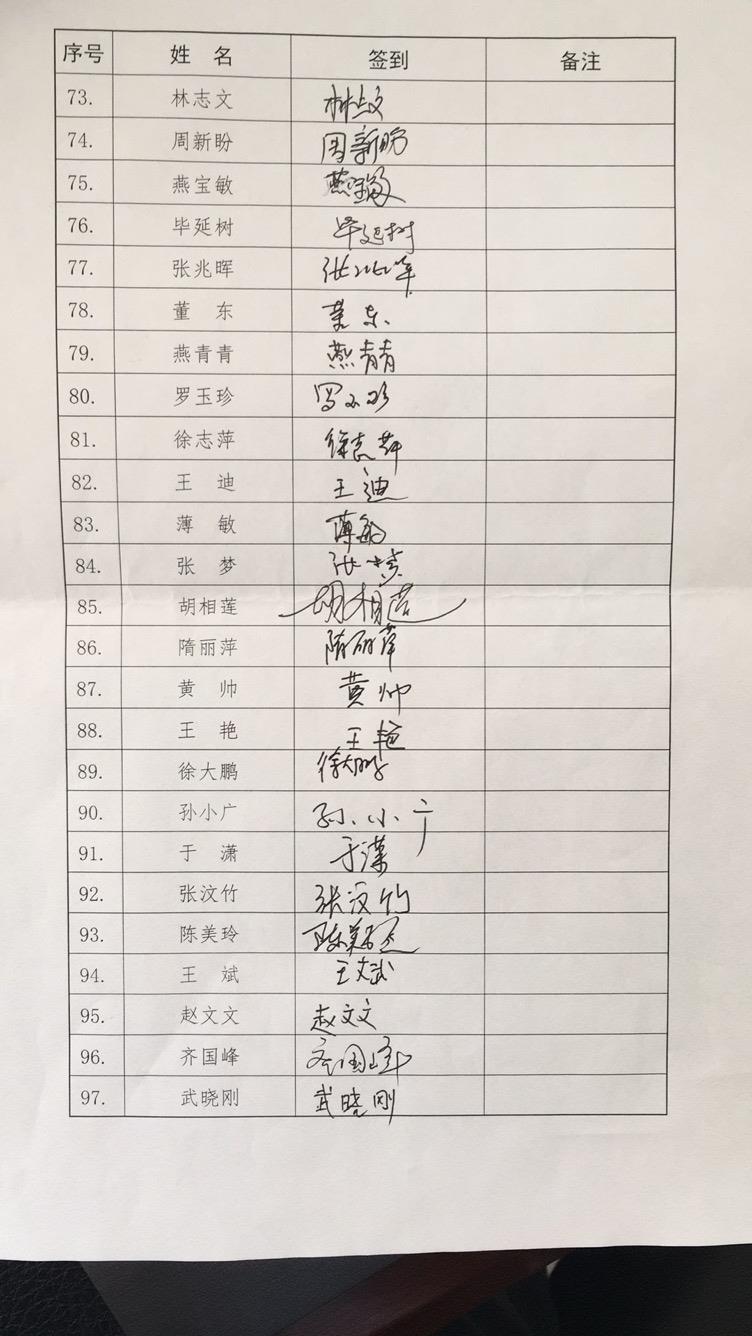 序号 姓 名 签到 备注
73. 林志文 林志文
74. 周新盼 周新盼
75. 燕宝敏 燕宝敏
76. 毕延树 毕延树
77. 张兆晖 张兆晖
78. 董 东 董东
79. 燕青青 燕青青
80. 罗玉珍 罗玉珍
81. 徐志萍 徐志萍
82. 王 迪 王迪
83. 薄 敏 薄敏
84. 张 梦 张梦
85. 胡相莲 胡相莲
86. 隋丽萍 隋丽萍
87. 黄 帅 黄帅
88. 王 艳 王艳
89. 徐大鹏 徐大鹏
90. 孙小广 孙小广
91. 于 潇 于潇
92. 张汶竹 张汶竹
93. 陈美玲 陈美玲
94. 王 斌 王斌
95. 赵文文 赵文文
96. 齐国峰 齐国峰
97. 武晓刚 武晓刚